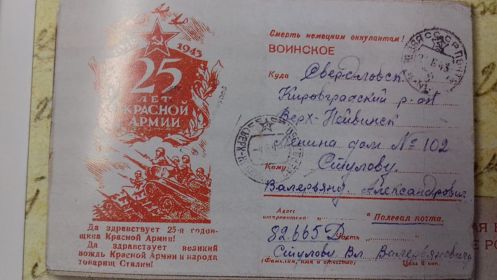 1943
25
ЛЕТ
КРАСНОЙ
АРМИИ
Да здравствует 25-я годов-
щина Красной Армии!
Да здравствует великий
вождь Красной Армии и народа
товарищ Сталин!
Смерть немецким оккупантам!
ВОИНСКОЕ
Куда Свердловск
Кировградский р-он
Верх-Нейвинск
Ленина дом № 102
Кому Стулову
Валерьяну Александрович
Адрес Полевая почта
82665 Д часть
Стулову Вл. Валерьяновичу